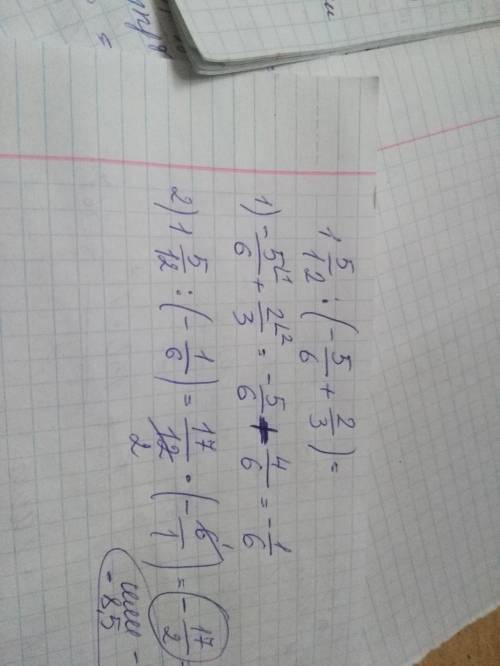 1 5/12 : (-5/6 + 2/3) =
1) -5/6 + 2/3 = -5/6 + 4/6 = -1/6
2) 1 5/12 : (-1/6) = 17/12 · (-6/1) = -17/2
или
-8,5